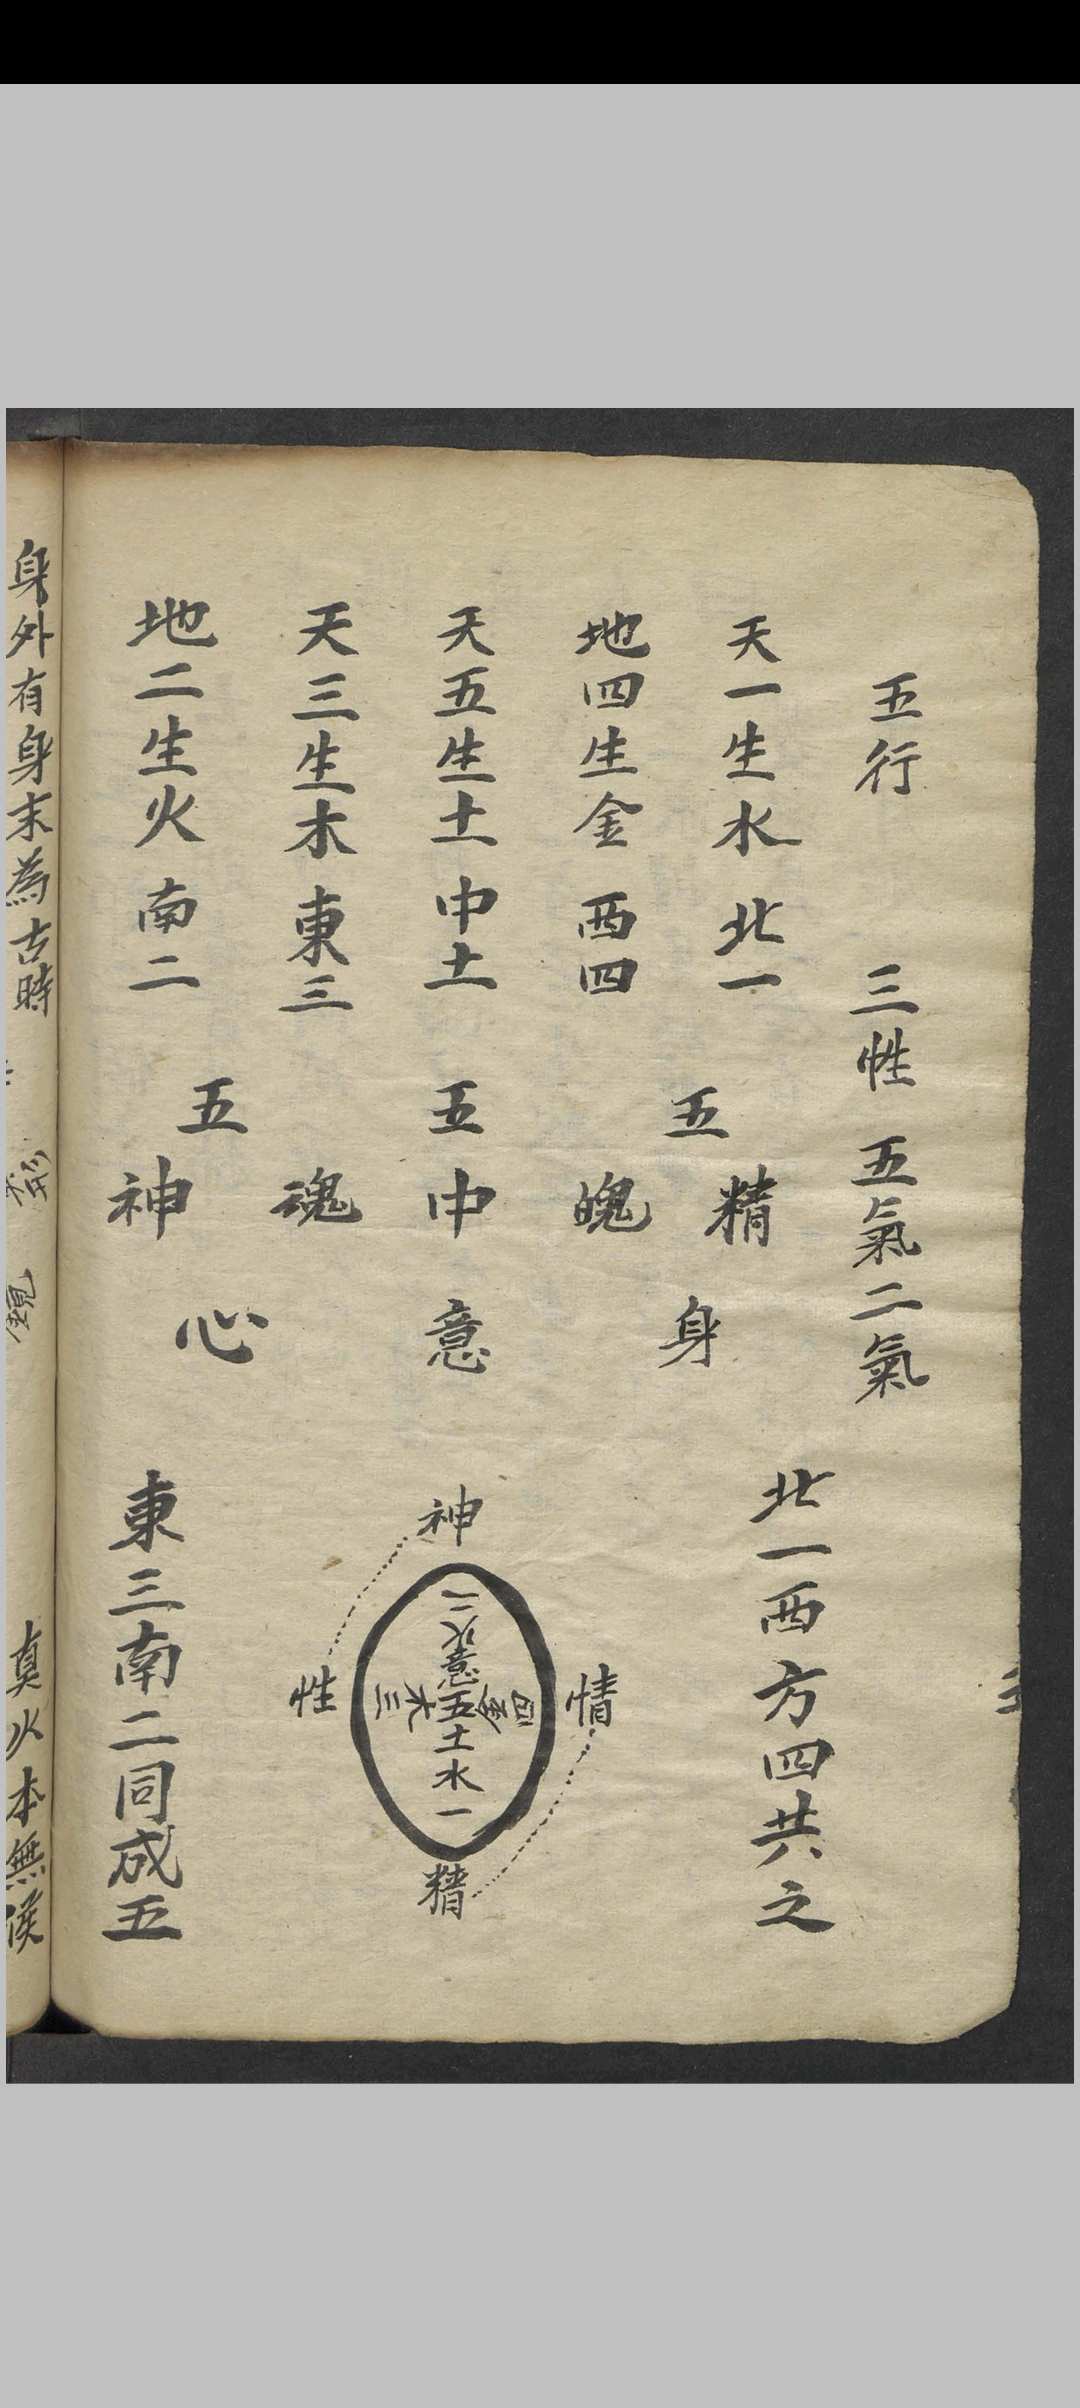 五行 三性 五氣二氣
天一生水 北一 精
地四生金 西四 魄
五 身
天五生土 中土 五中 意
天三生木 東三 魂
地二生火 南二 神
五 心
北一西方四共之
神
性
情
精
二火意五土水一
三木
四金
東三南二同成五
身外有身末為古時
真火本無候